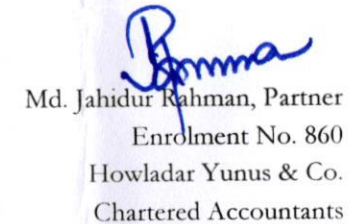 Md. Jahidur Rahman, Partner
Enrolment No. 860
Howladar Yunus & Co.
Chartered Accountants